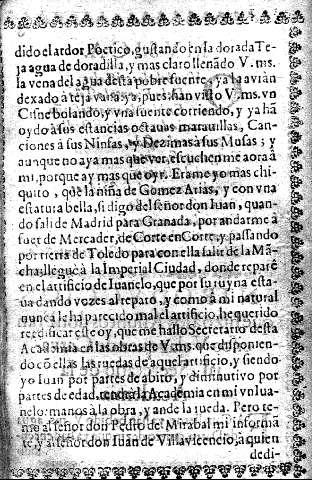 dido el ardor Poetico, gustando en la dorada Te-
ja agua de doradilla, y mas claro llenãdo V. ms.
la vena del agua desta pobre fuente, ya la avrán
dexado à teja vana: ya, pues han visto V. ms. vn
Cisne bolando, y vna fuente corriendo, y ya hã
oydo à sus estancias octauas marauillas, Can-
ciones à sus Ninfas, y Dezimas à sus Musas; y
aunque no aya mas que ver, escuchenme aora à
mi, porque ay mas que oyr. Erame yo mas chi-
quito, que la niña de Gomez Arias, y con vna
estatura bella, si digo del señor don Iuan, quan-
do sali de Madrid para Granada, por andarme à
fuer de Mercader, de Corte en Corte, y passando
por tierra de Toledo para con ella salir de la Mã-
cha, lleguè à la Imperial Ciudad, donde reparè
en el artificio de Iuanelo, que por su ruyna esta-
ua dando vozes al reparo, y como à mi natural
nunca le ha parecido mal el artificio, he querido
reedificar este oy, que me hallo Secretario desta
Academia en las obras de V. ms. que disponien-
do cõ ellas las ruedas de aquel artificio, y siendo
yo Iuan por partes de abito, y diminutivo por
partes de edad, tendrà la Academia en mi vn Iua-
nelo: manos à la obra, y ande la rueda. Pero te-
mo al señor don Pedro de Mirabal mi informã
te, y al señor don Iuan de Villavicencio, à quien
dedi-